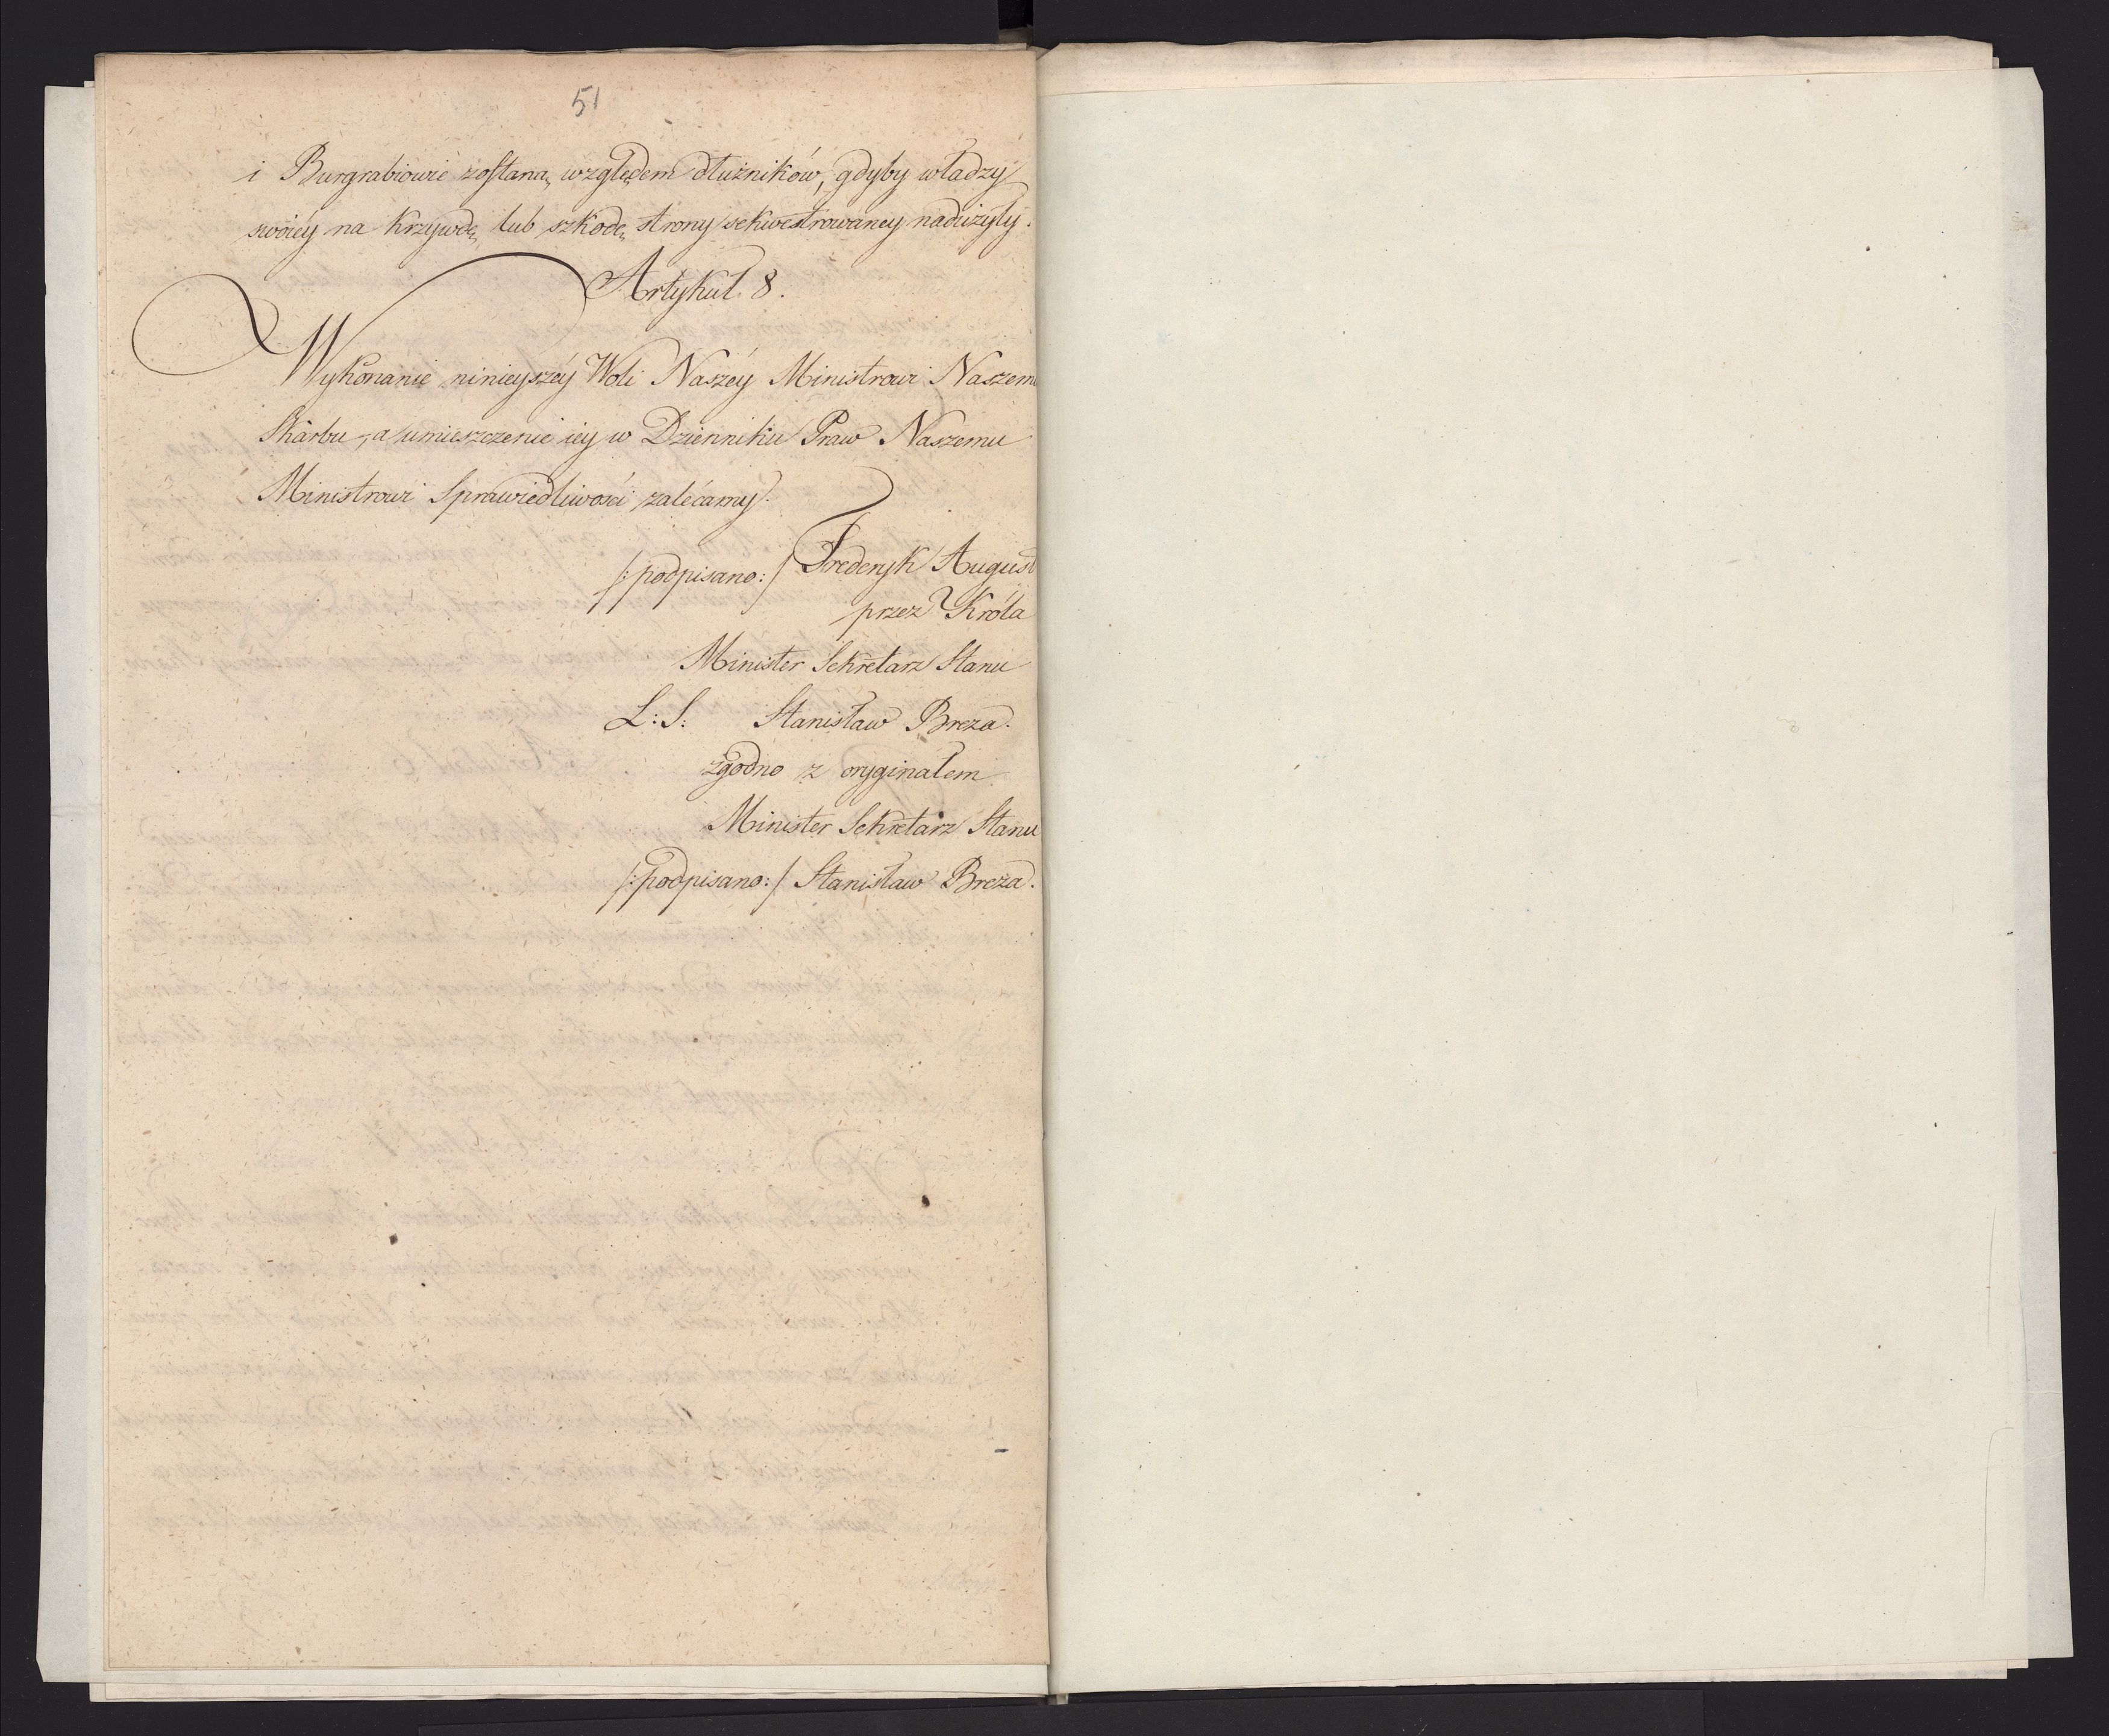 51
i Burgrabiowie zostaną względem dłużników, gdyby władzy
swoiéy na krzywdę lub szkodę strony sekwestrowaney nadużyły.
Artykuł 8.
Wykonanie ninieyszéy Woli Naszéy Ministrowi Naszemu
Skarbu, a umieszczenie iey w Dzienniku Praw Naszemu
Ministrowi Sprawiedliwości zalecamy.
/:podpisano:/ Frederyk August
przez Króla
Minister Sekretarz Stanu
L:S: Stanisław Breza.
zgodno z oryginałem
Minister Sekretarz Stanu
/:podpisano:/ Stanisław Breza.